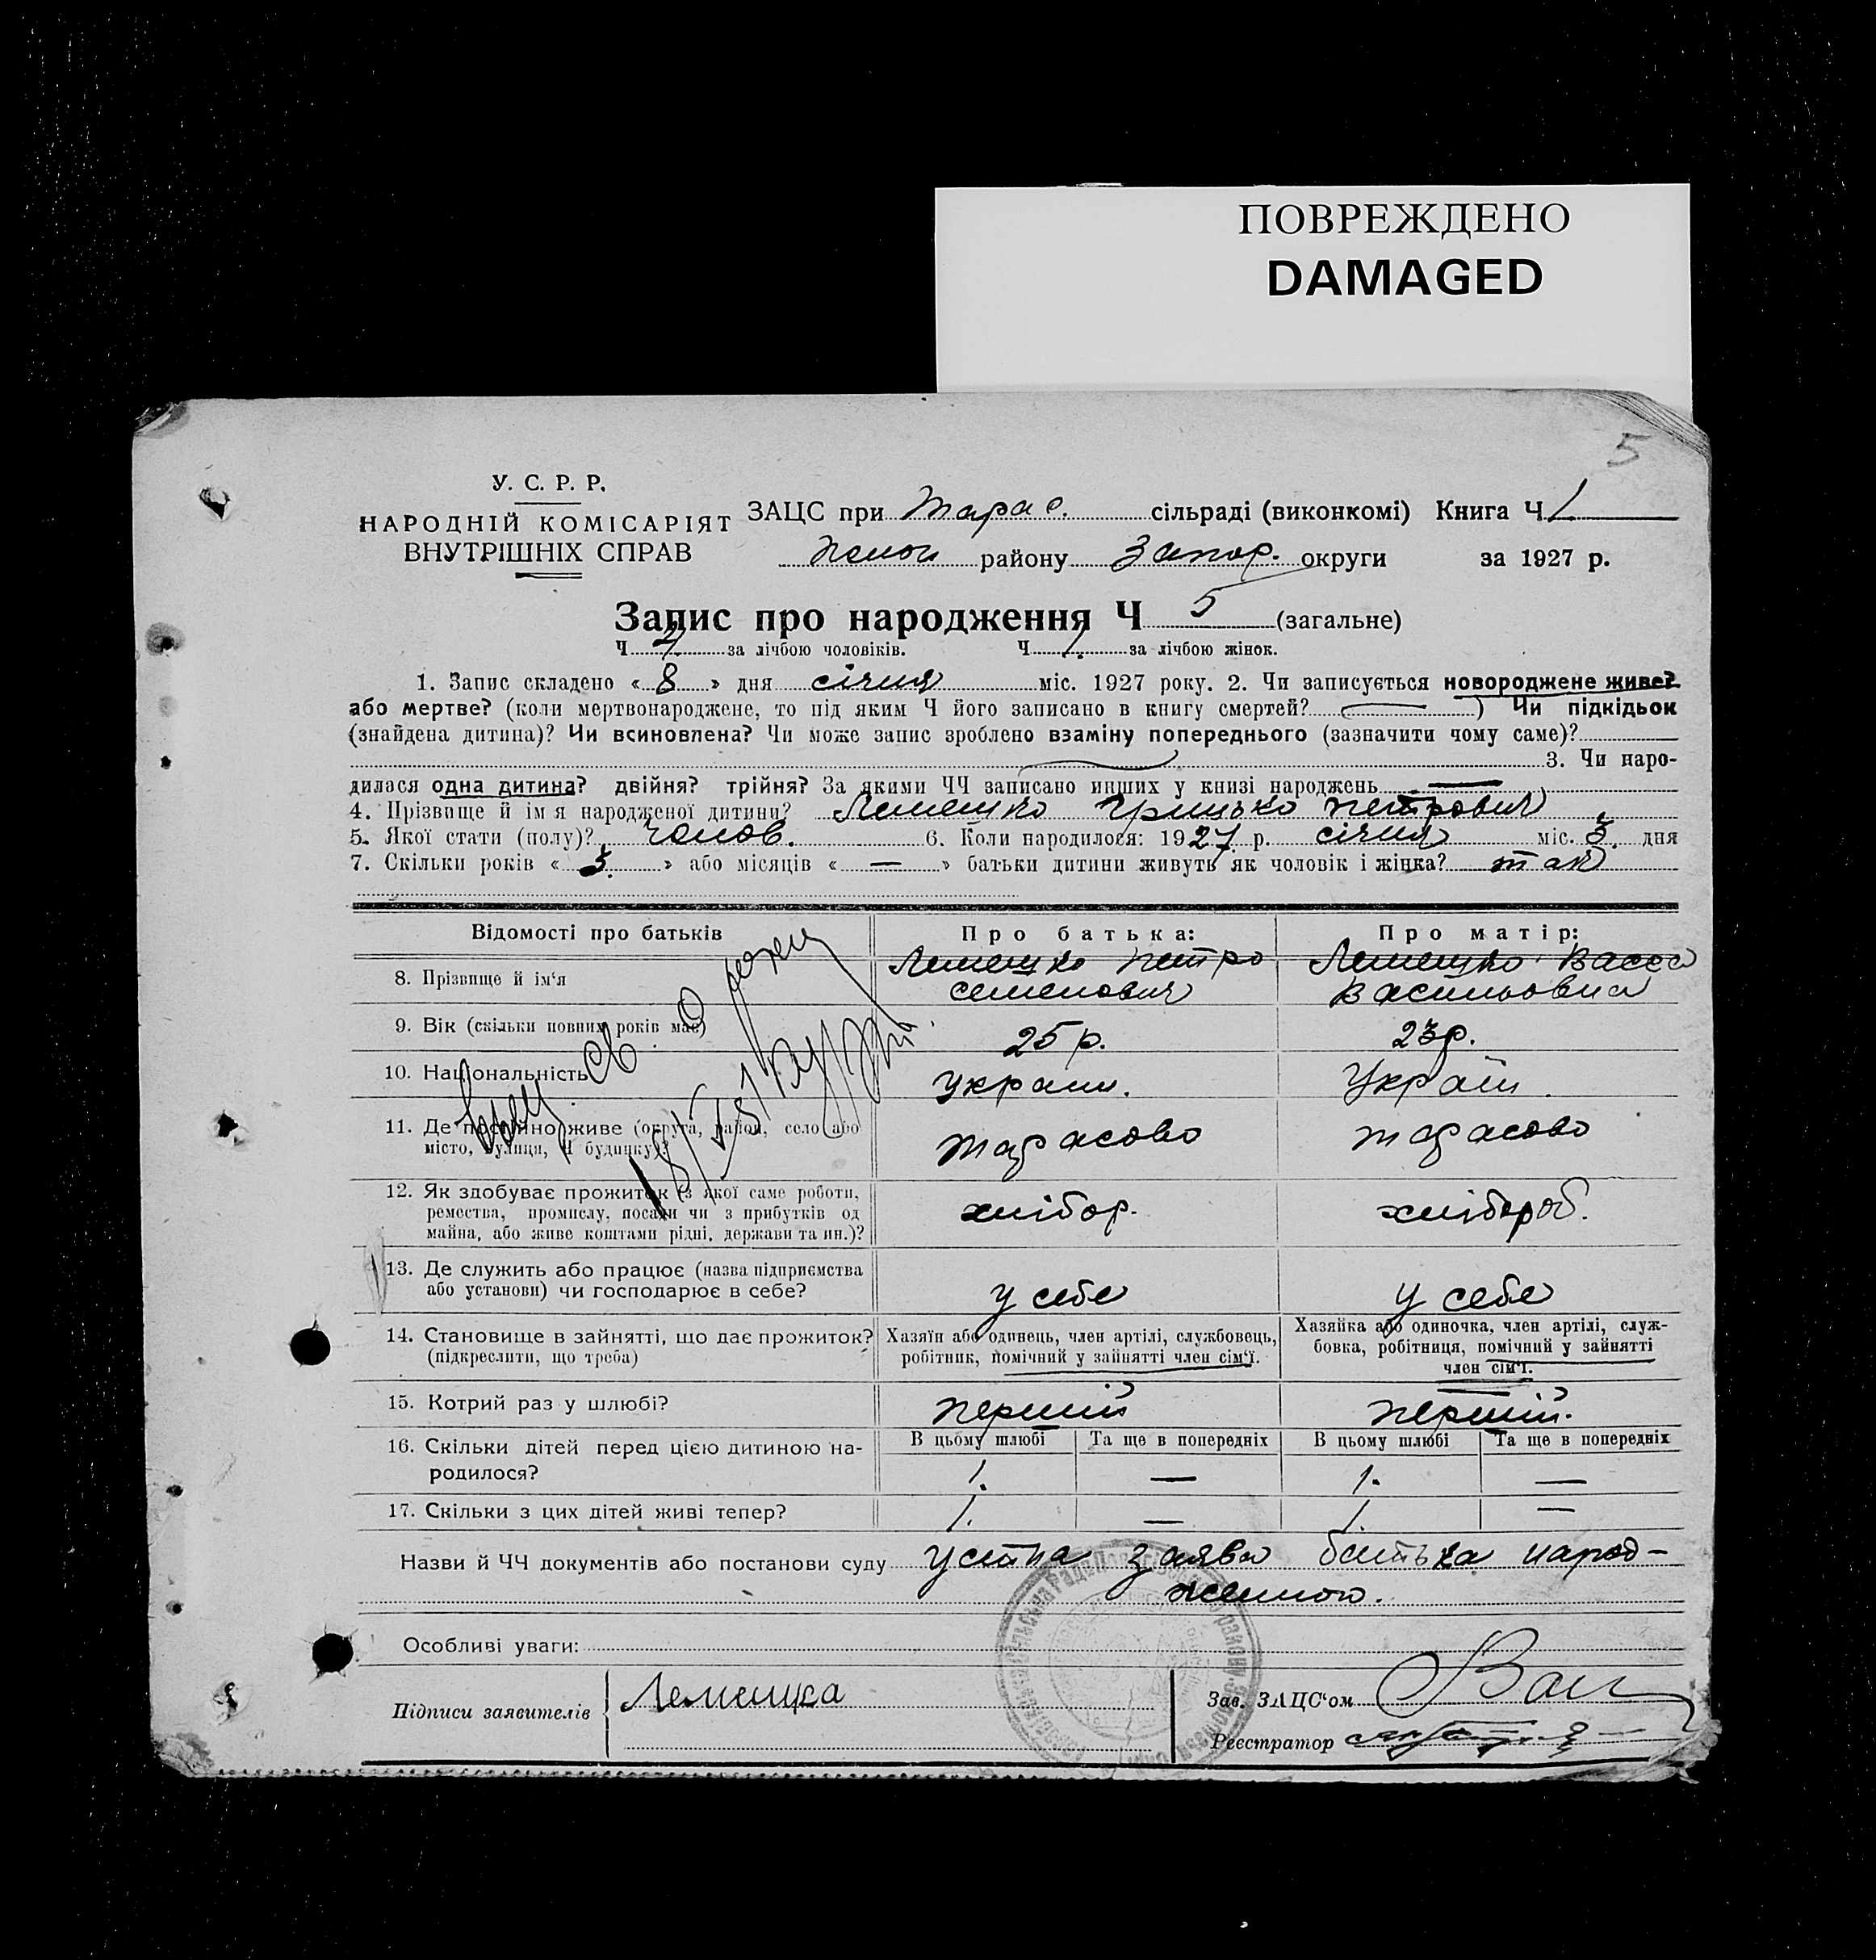 ПОВРЕЖДЕНО
DAMAGED
5
У. С. Р. Р.
НАРОДНІЙ КОМІСАРІЯТ
ВНУТРІШНІХ СПРАВ
ЗАЦС при Тарас. сільраді (виконкомі) Книга Ч 1
району Запор. округи за 1927 р.
Запис про народження Ч 5 (загальне)
Ч 4 за лічбою чоловіків. Ч 1. за лічбою жінок.
1. Запис складено « 8 » дня січня міс. 1927 року. 2. Чи записується новороджене живе?
або мертве? (коли мертвонароджене, то під яким Ч його записано в книгу смертей? —) Чи підкідьок
(знайдена дитина)? Чи всиновлена? Чи може запис зроблено взаміну попереднього (зазначити чому саме)?
3. Чи наро-
дилася одна дитина? двійня? трійня? За якими ЧЧ записано инших у книзі народжень —
4. Прізвище й ім'я народженої дитини? Лемешко Грицько Петрович
5. Якої стати (полу)? чолов. 6. Коли народилося: 1927 р. січня міс. 3. дня
7. Скільки років « 3. » або місяців « — » батьки дитини живуть як чоловік і жінка? так
Відомості про батьків Про батька: Про матір:
8. Прізвище й ім'я Лемешко Петро Семенович Лемешко Васса Васильовна
9. Вік (скільки повних років має) 25 р. 23 р.
10. Національність Україн. Україн.
11. Де постійно живе (округа, район, село або місто, вулиця, Ч будинку)? Тарасово Тарасово
12. Як здобуває прожиток (з якої саме роботи, ремества, промислу, посади чи з прибутків од майна, або живе коштами рідні, держави та ин.)? хлібор. хлібороб.
13. Де служить або працює (назва підприємства або установи) чи господарює в себе? у себе у себе
14. Становище в зайнятті, що дає прожиток? (підкреслити, що треба) Хазяїн або одинець, член артілі, службовець, робітник, помічний у зайнятті член сім'ї. Хазяйка або одиночка, член артілі, служ-бовка, робітниця, помічний у зайнятті член сім'ї.
15. Котрий раз у шлюбі? перший перший.
16. Скільки дітей перед цією дитиною на-родилося? В цьому шлюбі Та ще в попередніх В цьому шлюбі Та ще в попередніх
1. — 1. —
17. Скільки з цих дітей живі тепер? 1. — 1. —
Назви й ЧЧ документів або постанови суду устна заява батька народ-
женного.
Особливі уваги:
Підписи заявителів Лемешка
Зав. ЗАЦС'ом
Реєстратор